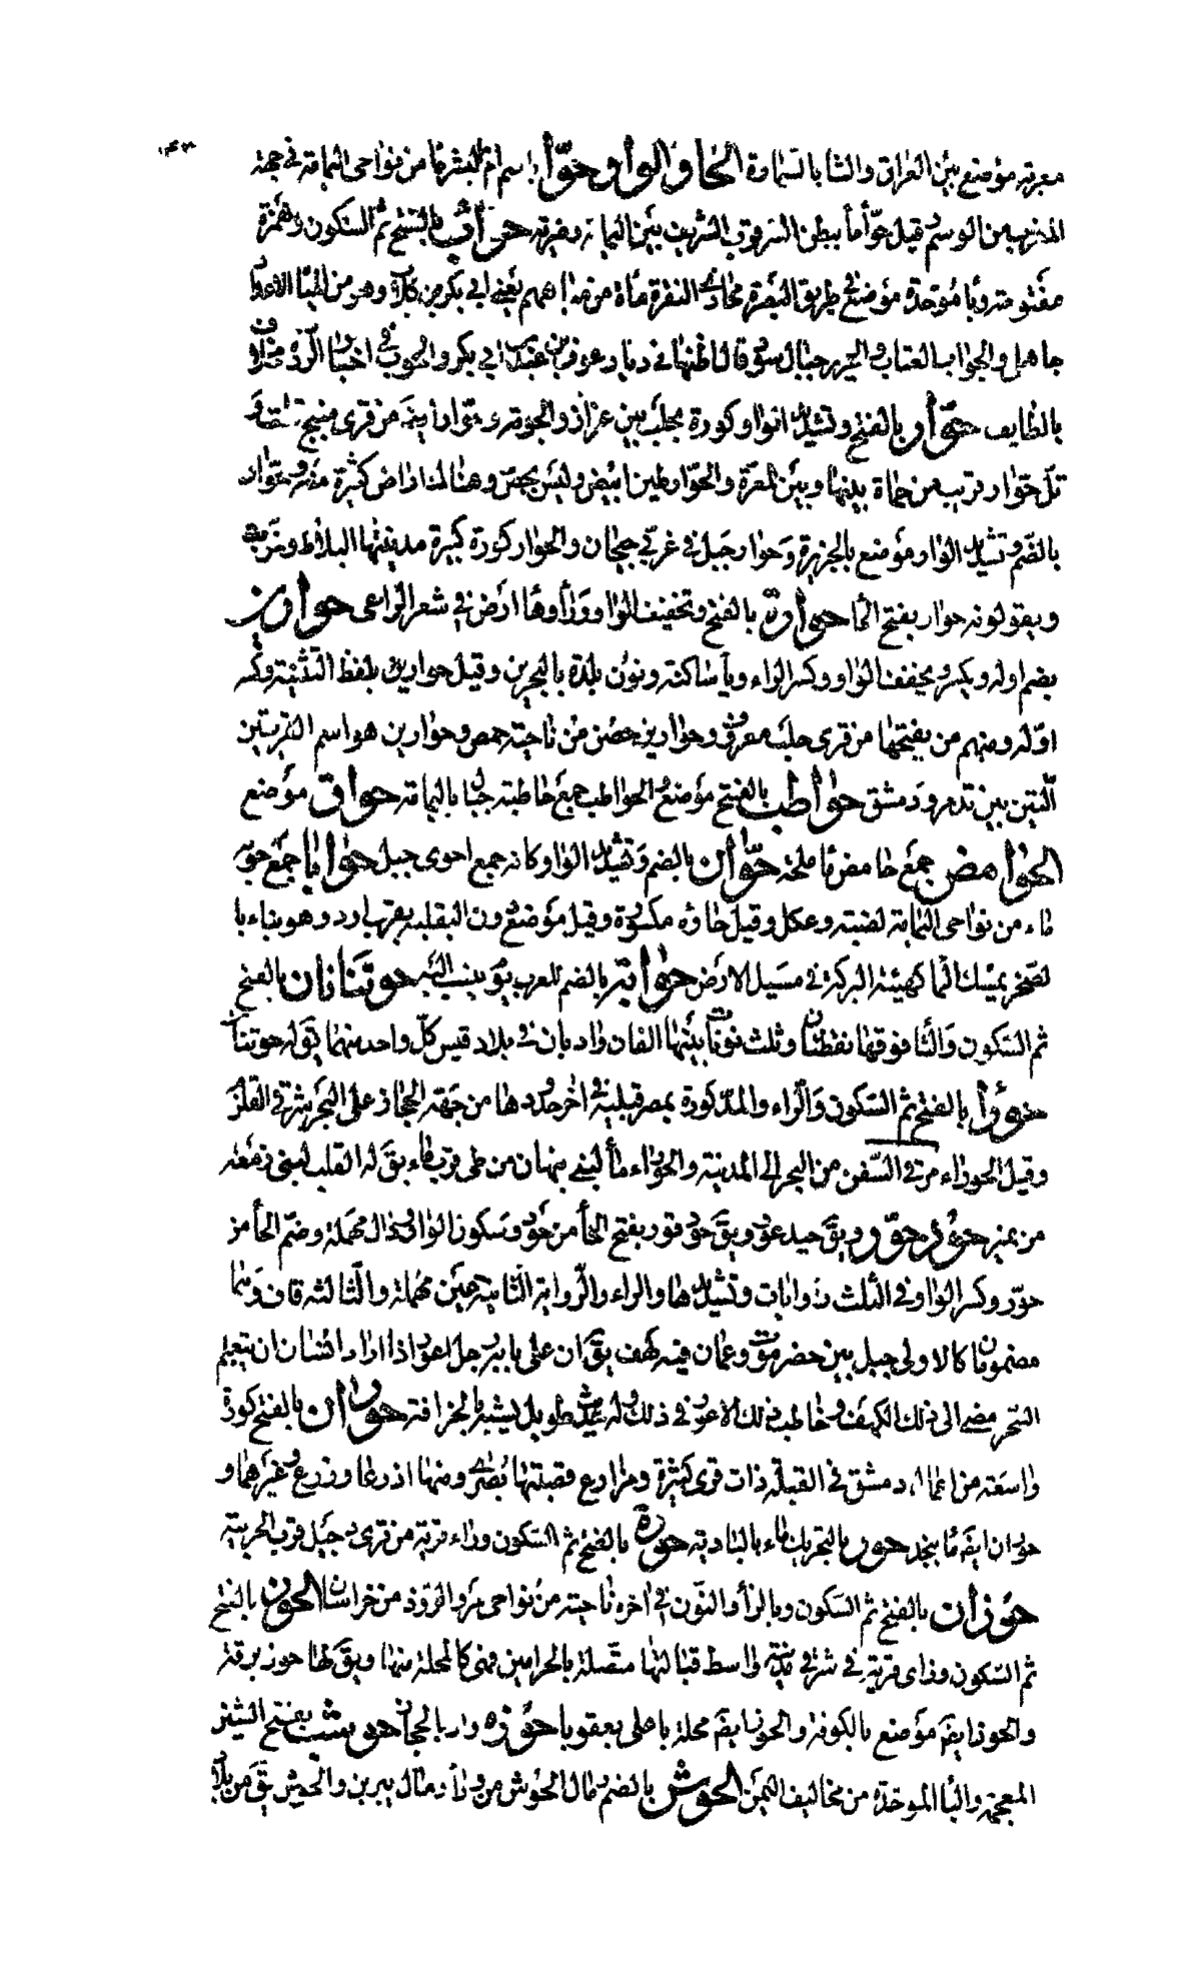 معربة موضع بين العراق والشام بالسماوة الحاو الواو وحوّا اسم ام للبشر ما من نواحى اليمامة فى جهة
المغرب من الوسم وقيل حوّا ما ببطن السر قرب الشريف بين اليمامة وضرية حوأب بالفتح ثم السكون وهمزة
مفتوحة وبا موحدة موضع فى طريق البصرة محاذى النقرة ماة من مياههم يعنى ابى بكر بن كلاب وهو من المياه الاعداد
جاهلى والجواب العناب والحرير جبال سود قال اظنها فى ديار عوف بن عبد بن ابى بكر والحوب فى اخبار الردة مخلاف
بالطايف حوّار بالفتح وتشديد الواو كورة بحلب بين عزاز والجومة وحوّار ايضا من قرى منبج
تل حوار قريب من حماة بينها وبين المعرة والحوّار طين ابيض وليس بجص وهنالك اراض كثيرة
بالضم وتشديد الواو موضع بالجزيرة وحوار جبل فى غربى جيحان والحوار كورة كبيرة مدينتها البلاط
ويقولونه حوار بفتح الحا حوارة بالفتح وتخفيف الواو ورا وها ارض فى شعر الراعى حوارين
بضم اوله ويكسر ويخفف الواو وكسر الراء ويا ساكنة ونون بلدة بالبحرين وقيل حوارين بلفظ التثنية وكسر
اوله ومنهم من يفتحها من قرى حلب معروف وحوارين حصن من ناحية حمص وحوارين هو اسم القريتين
اللتين بين تدمر ودمشق حواطب بالفتح موضع الحواطب جمع حاطبة جبال باليمامة حواق موضع
الحوامض جمع حامض ما ملحة حوّان بالضم وتشديد الواو كانه جمع احوى جبل حوايا جمع حوية
ماء من نواحى اليمامة لضبة وعكل وقيل حاؤه مكسورة وقيل موضع دون الثعلبية بقرب اود وهو بناء با
لصخر يمسك الما كهيئة البركة فى مسيل الارض حواية بالضم حوتنانان بالفتح
ثم السكون والتا فوقها نقطتان وثلث نونات بينها الفان واديان فى بلاد قيس كل واحد منهما يقال له حوتنان
حوراء بالفتح ثم السكون والراء والمد كورة بمصر قبلية فى اخر حدودها من جهة الحجاز على البحر شرقى القلزم
وقيل الحوراء مرفى السفن من البحر الى المدينة والحوراء ما لبنى نبهان من طى قرب ماء يق له القلب لبنى ربيعة
من نمير حور يق حيد عور ويق حور قور بفتح الحا من حور وسكون الواو ودال مهملة وضم الحا من
حوّر وكسر الواو فى الثلث روايات وتشديدها والراء والرواية الثانية عين مهملة والثالثة قاف وهما
مضمومان كالاولى جبل بين حضرموت وعمان فيه كهف يق ان على بابه رجل اعور اذا اراد انسان ان يتعلم
السحر مضى الى ذلك الكهف وخاطب ذلك الاعور فى ذلك وله حديث طويل يشبه بالخرافة حوران بالفتح كورة
واسعة من اعمال دمشق فى القبلة ذات قرى كثيرة ومزارع قصبتها بصرى ومنها اذرعات وزرع وغيرهما و
حوران ايضا ما بنجد حور بالتحريك ماء بالبادية حورة بالفتح ثم السكون وراء قرية من قرى دجيل قرب الحربية
حوزان بالفتح ثم السكون وبالزا والنون فى اخره ناحية من نواحى مرو الروذ من خراسان الحوز بالفتح
ثم السكون وزاى قرية فى شرقى مدينة واسط قبالتها متصلة بالحزامين فهى كالمحلة منها ويق لها حوز برقة
والحوز ايضا موضع بالكوفة والحوز ايضا محلة باعلى بعقوبا حوزة واد بالحجاز حوشب بفتح الشين
المعجمة والبا الموحدة من مخاليف اليمن الحوش بالضم رمال الحوش من وراء رمال يبرين والحوش يق من بلاد